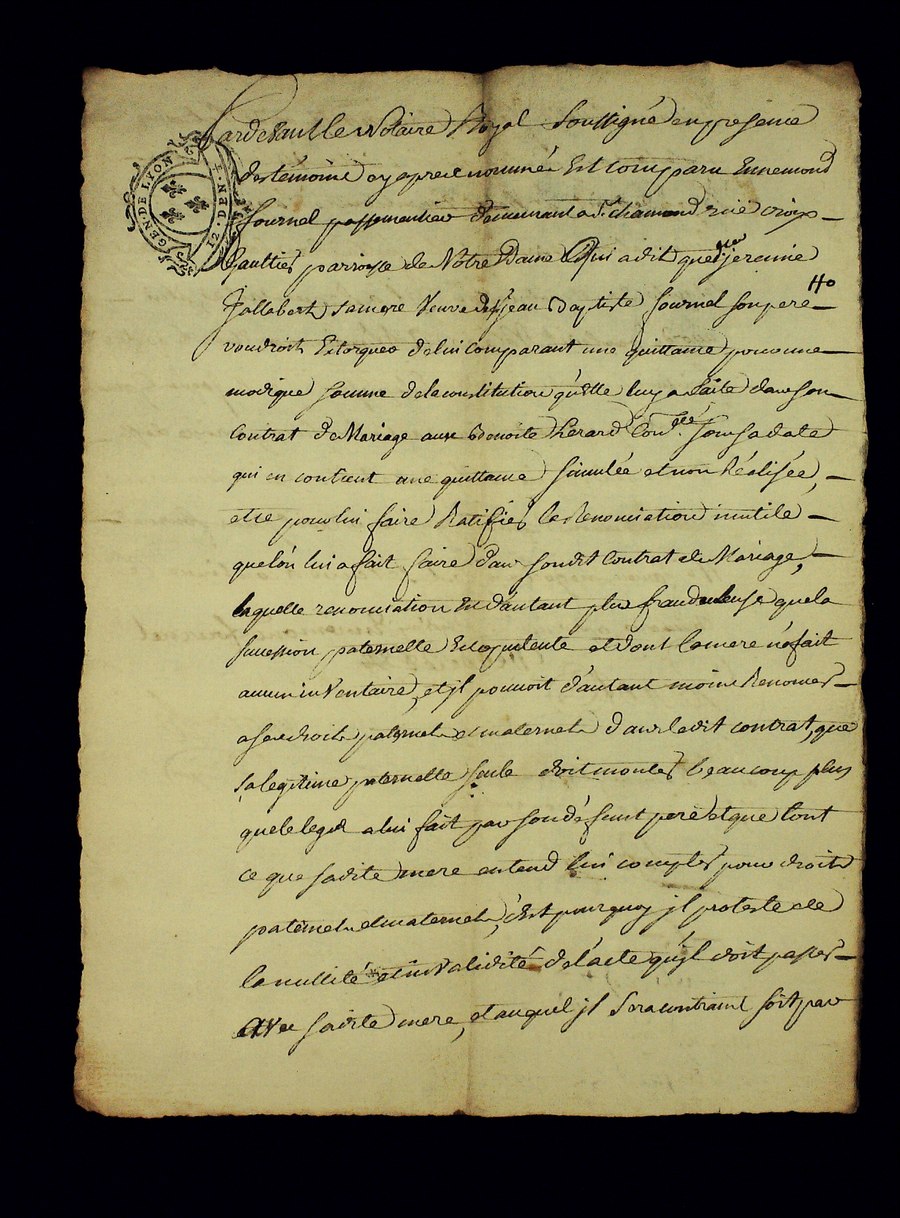 GEN·DE LYON
12·DEN·F·
Pardevant le Notaire Royal Soussigné en presence
des témoins cy apres nommés Est comparu Ennemond
fournel passmentier demeurant a St. chamond rüe croix
Gaultier parroisse de Notre Dame Qui a dit que jeromie
40
Jallabert sa mere Veuve de Sr jean Baptiste fournel son pere
voudroit Extorquer de lui comparant une quittance pour une
modique somme de la constitution qu'Elle luy a faite dans son
Contrat de Mariage avec Benoite Gerard sous sa date
qui en contient une quittance simulée et non Réalisée,
et ce pour lui faire Ratifier la Renonciation inutile
que lón lui a fait faire dans sondit Contrat de Mariage,
laquelle renonciation Est d'autant plus frauduleuse que la
succession paternelle Est opulente et dont la mere n'a fait
aucun inVentaire, et jl pouvoit d'autant moins Renoncer
a ses droits paternels et maternels dans ledit contrat, que
sa legitime paternelle seule doit monter beaucoup plus
que le legs a lui fait par son défunt pere et que tout
ce que sadite mere entend lui compter pour droits
paternels et maternels, c'Est pourquoy jl proteste de
la nullité et inValidité de l'acte qu'jl doit passer
avec sadite mere, et auquel jl sera contraint soit par